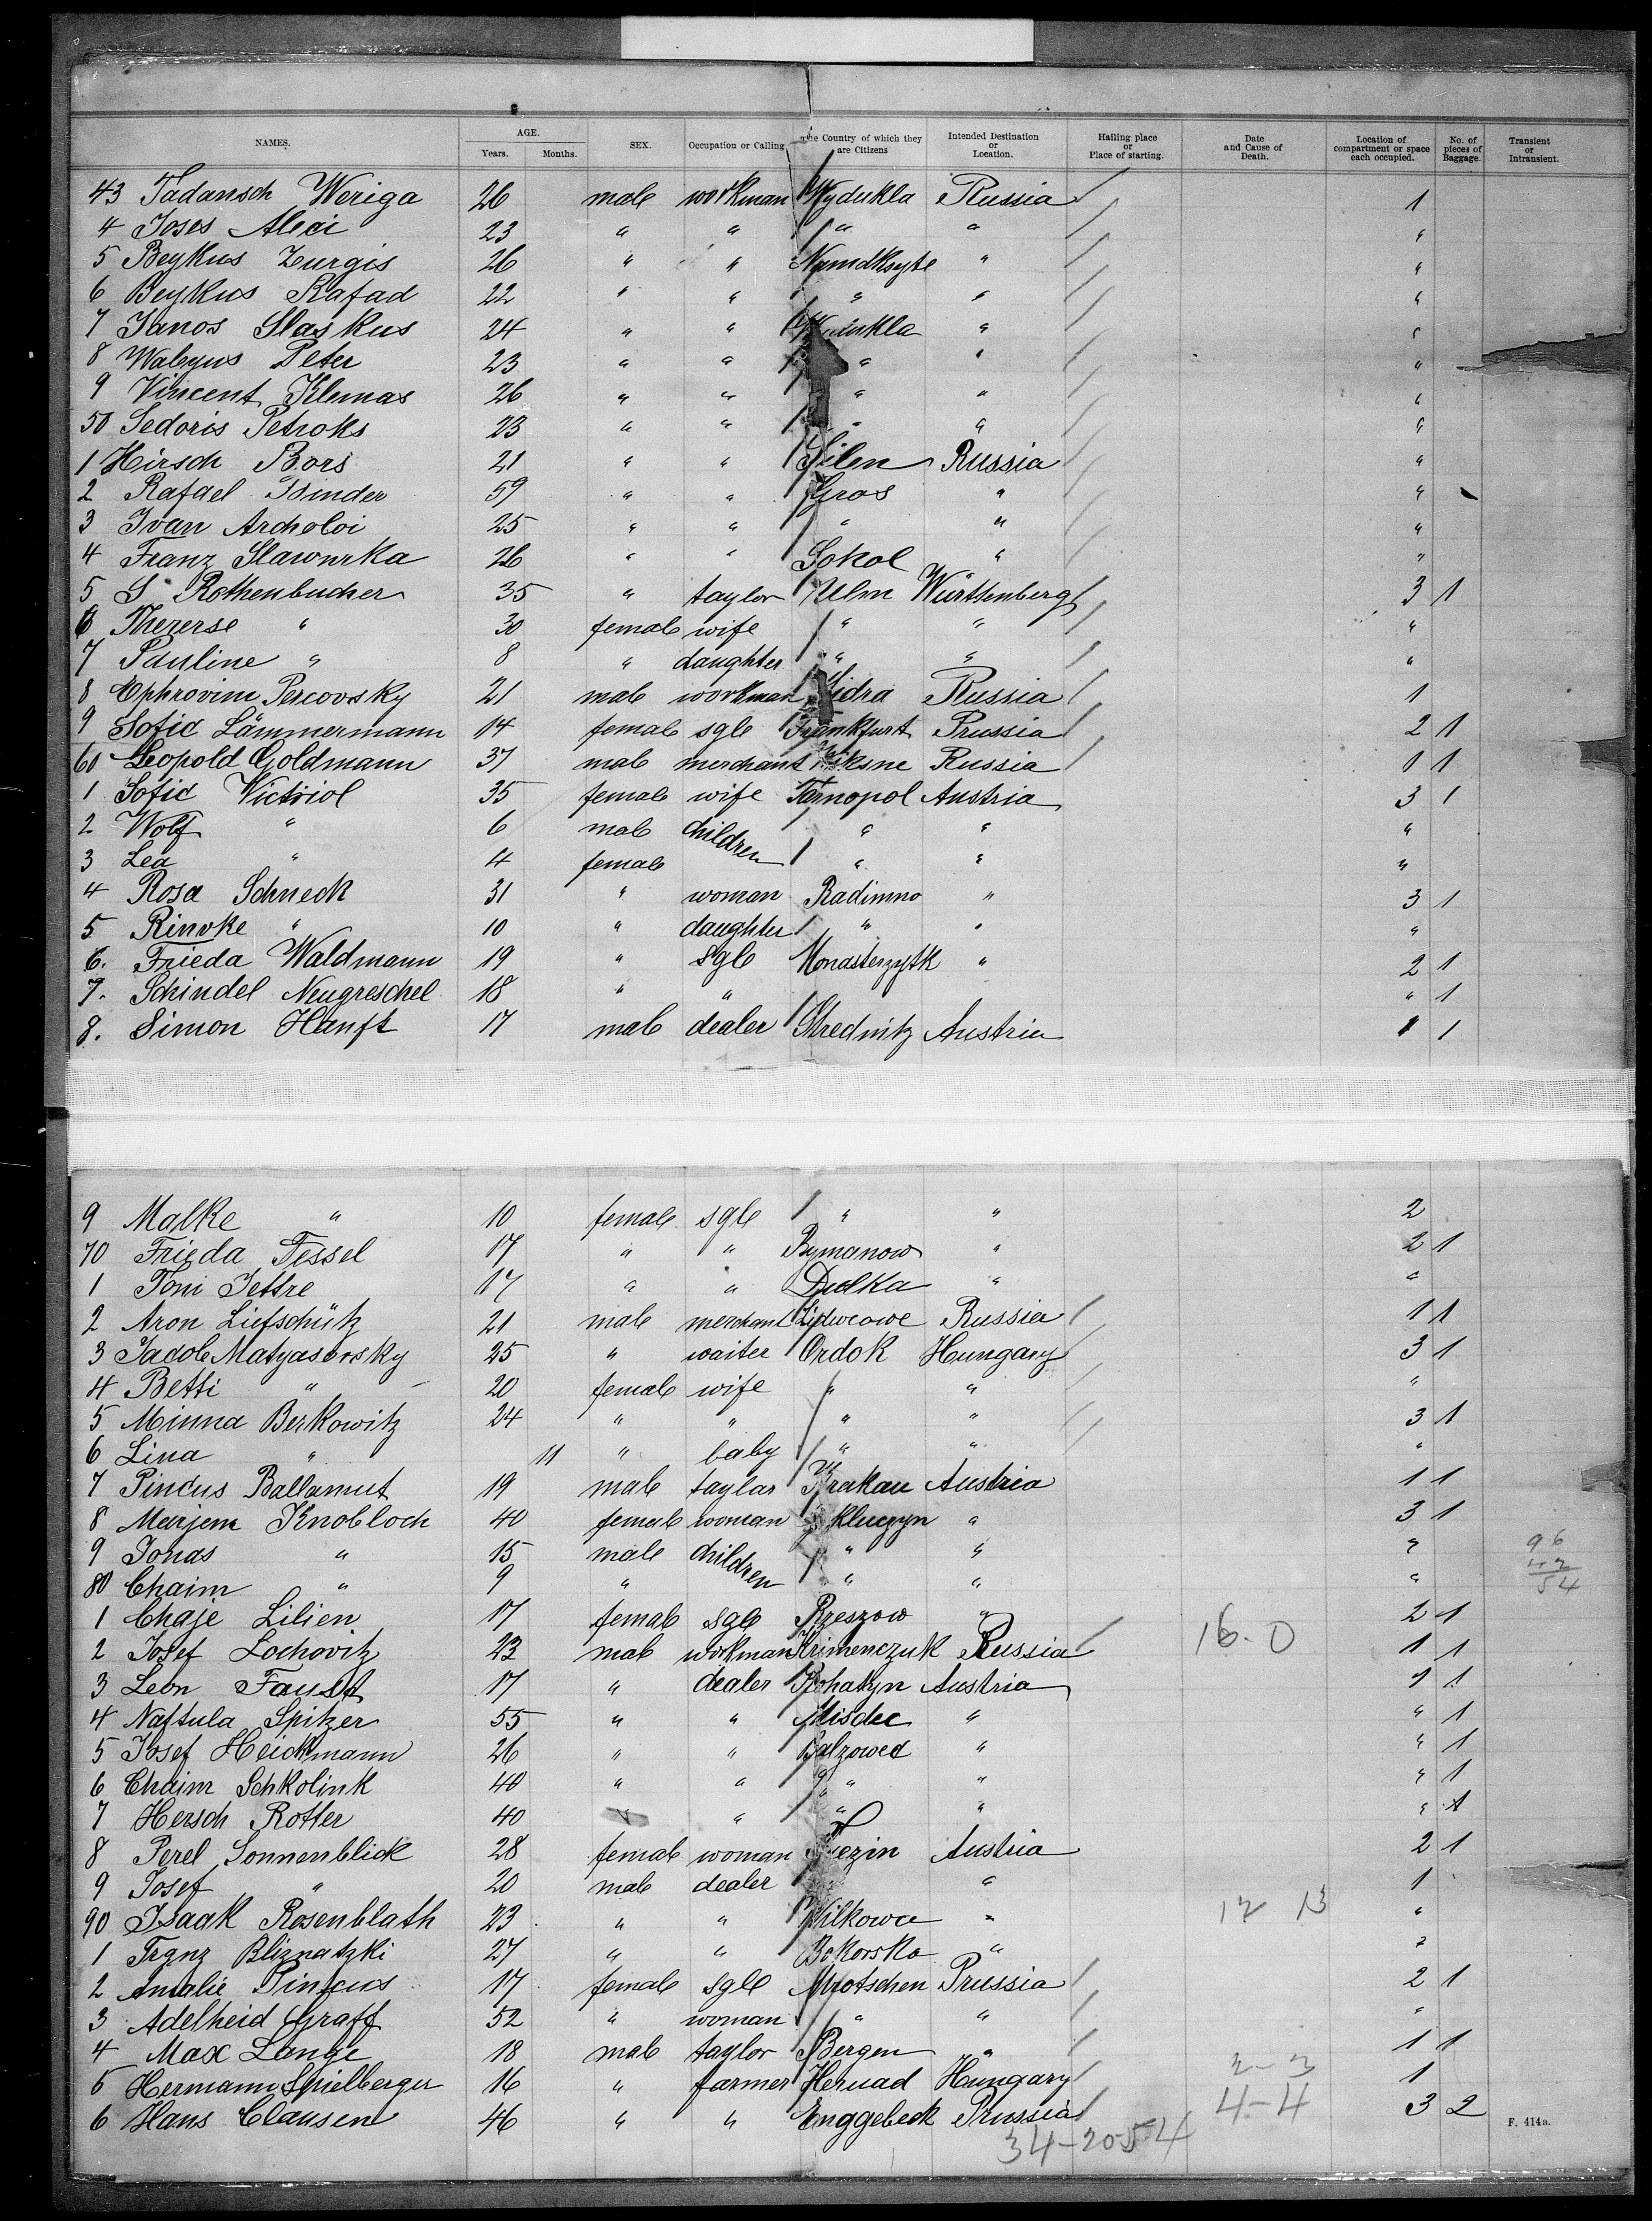 NAMES. AGE. Years. Months. SEX. Occupation or Calling The Country of which they are Citizens Intended Destination or Location. Hailing place or Place of starting. Date and Cause of Death. Location of compartment or space each occupied. No. of pieces of Baggage. Transient or Intransient.
43 Tadansch Weriga 26 male workman Wydukla Russia 1
4 Joses Aleci 23 " " " " "
5 Beykus Zurgis 26 " " "
6 Beykus Rafad 22 " " " " "
7 Janos Slaskus 24 " " " "
8 Wabyus Peter 23 " " " " "
9 Vincent Klemas 26 " " " " "
50 Sedoris Petroks 23 " " " " "
1 Hirsch Bors 21 " " Silen Russia "
2 Rafael Binder 59 " " Gros " "
3 Ivan Archoloi 25 " " " " "
4 Franz Slawnrka 26 " " Sokol " "
5 S Rothenbucher 35 " taylor Ulm Württenberg 3 1
6 Thererse " 30 female wife " " "
7 Pauline " 8 " daughter " " "
8 Ephrovim Percovsky 21 male workman Sidra Russia 1
9 Sofie Lämmermann 14 female sgle Frankfurt Prussia 2 1
60 Leopold Goldmann 37 male merchant Wiksne Russia 1 1
1 Sofie Victriol 35 female wife Tarnopol Austria 3 1
2 Wolf " 6 male children " " "
3 Lea " 4 female " " "
4 Rosa Schneck 31 " woman Radimno " 3 1
5 Rinvke " 10 " daughter " " "
6. Frieda Waldmann 19 " sgle Monasterzytk " 2 1
7. Schindel Neugreschel 18 " " " 1
8. Simon Hanft 17 male dealer Strednitz Austria 1 1
9 Malke " 10 female sgle " " 2
70 Frieda Tessel 17 " " Rymanow " 2 1
1 Toni Jettre 17 " " Dulka " "
2 Aron Liefschütz 21 male merchant Russia 1 1
3 Jacob Matyasovsky 25 " waiter Ordok Hungary 3 1
4 Betti " 20 female wife " " "
5 Minna Berkowitz 24 " " " " 3 1
6 Lina " 11 " baby " " "
7 Pincus Ballamut 19 male taylor Krakau Austria 1 1
8 Marjem Knobloch 40 female woman kluczyn " 3 1
9 Jonas " 15 male children " " " 96
42
80 Chaim " 9 " " " " 54
1 Chaje Lilien 17 female sgle Rzeszow " 2 1
2 Josef Lochovitz 23 male workman Krimenczuk Russia 16-0 1 1
3 Leon Faust 17 " dealer Rohatyn Austria 1 1
4 Naftula Spitzer 55 " " Misdec " " 1
5 Josef Heickmann 26 " " Balzowed " " 1
6 Chaim Schkolink 40 " " " " " 1
7 Hersch Rotter 40 " " " " 1
8 Perel Sonnenblick 28 female woman Austria 2 1
9 Josef " 20 male dealer " 1
90 Isaak Rosenblath 23 " " Wilkowa " 12 13 "
1 Franz Bliznatzki 27 " " Bokorska " "
2 Amalie Pincus 17 female sgle Mrotschen Prussia 2 1
3 Adelheid Graff 52 " woman " " "
4 Max Lange 18 male taylor Bergen " 1 1
5 Hermann Spielberger 16 " farmer Hernad Hungary 3-3 1
6 Hans Clausen 46 " " Enggebeck Prussia 4-4 3 2
34-20-54
F. 414a.